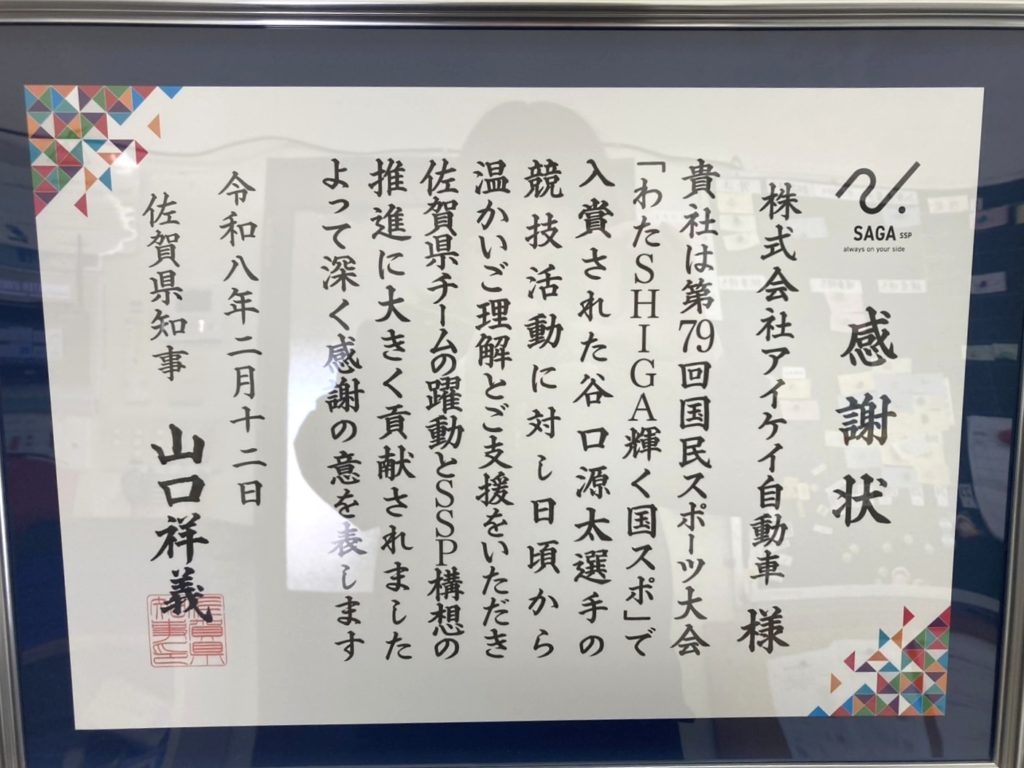 SAGA SSP
always on your side
感謝状
株式会社アイケイ自動車 様
貴社は第79回国民スポーツ大会
「わたSHIGA輝く国スポ」で
入賞された谷口源太選手の
競技活動に対し日頃から
温かいご理解とご支援をいただき
佐賀県チームの躍動とSSP構想の
推進に大きく貢献されました
よって深く感謝の意を表します
令和八年二月十二日
佐賀県知事 山口祥義